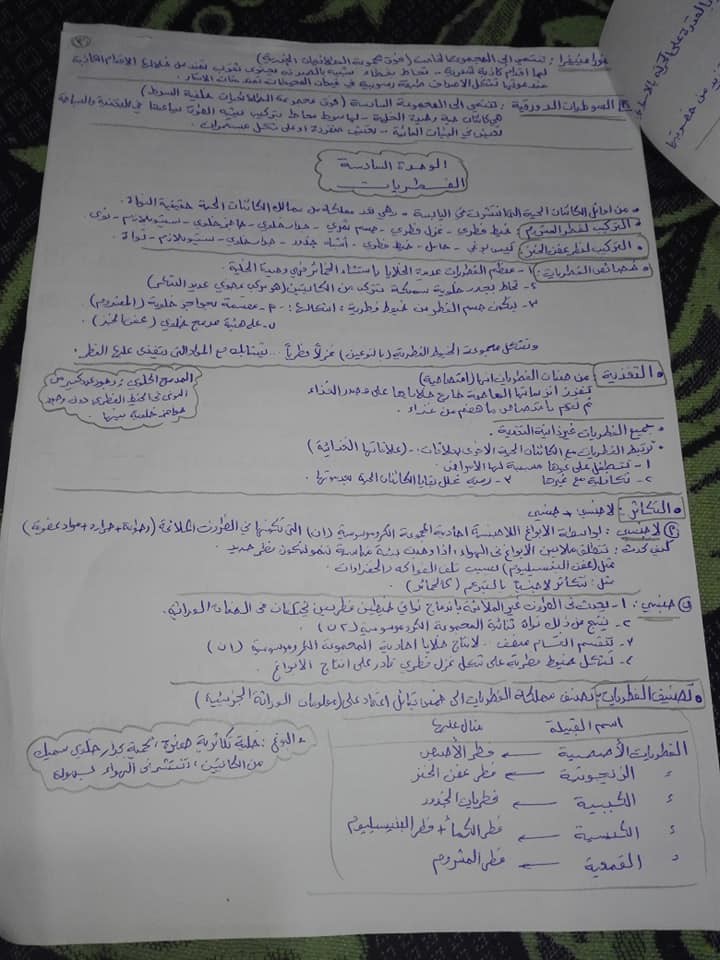 فورامنيفيرا: تنتمي الى المجموعة الخامسة (فوق مجموعة الطلائعيات الجذرية)
لها أقدام كاذبة شعرية - تحاط بغطاء شبيه بالصدفة يحتوي ثقوب تمتد من خلالها الأقدام الكاذبة
عند موتها تشكل الأصداف طبقة رسوبية في قيعان المحيطات تمتد مئات الأمتار.
السوطيات الدورقية: تنتمي الى المجموعة السادسة (فوق مجموعة الطلائعيات خلفية السوط)
هي كائنات حية وحيدة الخلية - لها سوط محاط بتركيب يشبه القمع يساعدها في التغذية والسباحة
تعيش في البيئات المائية - تعيش منفردة او على شكل مستعمرات.
الوحدة السادسة
الفطريات
من اوائل الكائنات الحية التي انتشرت في اليابسة - وهي تعد مملكة من ممالك الكائنات الحية حقيقية النواة.
التركيب لفطر المشروم: خيط فطري - غزل فطري - جسم ثمري - جدار خلوي - حاجز خلوي - سيتوبلازم - نوى
التركيب لفطر عفن الخبز: كيس بوغي - حامل - خيط فطري - أشباه جذور - جدار خلوي - سيتوبلازم - نواة
خصائص الفطريات: ١- معظم الفطريات عديدة الخلايا باستثناء الخمائر فهي وحيدة الخلية.
٢- تحاط بجدر خلوية سميكة تتركب من الكايتين (هو مركب عضوي عديد التسكر)
٣- يتكون جسم الفطر من خيوط فطرية: أشكالها: - ٢- مقسمة بحواجز خلوية (المشروم)
ب- على هيئة مدمج خلوي (عفن الخبز)
وتشكل مجموعة الخيوط الفطرية (بالنوعين) غزلاً فطرياً... تتشابك مع المواد التي يتغذى عليها الفطر.
المدمج الخلوي: وجود عدد كبير من
النوى في الخيط الفطري دون وجود
حواجز خلوية بينها.
التغذية: من صفات الفطريات انها (امتصاصية)
تفرز انزيماتها الهاضمة خارج خلاياها على مصدر الغذاء
ثم تقوم بامتصاص ما هضم من غذاء.
جميع الفطريات غير ذاتية التغذية.
ترتبط الفطريات مع الكائنات الحية الاخرى بعلاقات:- (علاقاتها الغذائية)
١- تتطفل على غيرها مسببة لها الأمراض.
٢- تكافلية مع غيرها ٣- رمية تحلل بقايا الكائنات الحية بعد موتها.
التكاثر: لاجنسي + جنسي
٢) لاجنسي: بواسطة الابواغ اللاجنسية احادية المجموعة الكروموسومية (١ن) التي تكونها في الظروف الملائمة (رطوبة + حرارة + مواد عضوية)
كيف يحدث: تنطلق ملايين الأبواغ في الهواء، اذا وجدت بيئة مناسبة تنمو لتكون فطر جديد.
مثل (عفن البنسيليوم) يسبب تلف الفواكه والخضراوات.
مثل: تتكاثر لاجنسياً بالتبرعم (كالخمائر)
ب) جنسي: ١- يحدث في الظروف غير الملائمة باندماج نواتي خيطين فطريين يختلفان في الصفات الوراثية.
٢- ينتج من ذلك نواة ثنائية المجموعة الكروموسومية (٢ن)
٣- تنقسم انقسام منصف.. لانتاج خلايا احادية المجموعة الكروموسومية (١ن)
٤- تشكل خيوط فطرية على شكل غزل فطري قادر على انتاج الأبواغ
تصنيف الفطريات: تصنف مملكة الفطريات الى خمس قبائل اعتماد على (معلومات الوراثة الجزيئية)
اسم القبيلة مثال عليها
الفطريات الأصيصية ← فطر الأصيص
〃 الزيجوتية ← فطر عفن الخبز
〃 الكبيبية ← فطريات الجذور
〃 الكيسية ← فطر الكمأ + فطر البنيسيليوم
〃 القمعية ← فطر المشروم
البوغ: خلية تكاثرية صغيرة، محمية بجدار خلوي سميك
من الكايتين، تنتشر في الهواء بسهولة